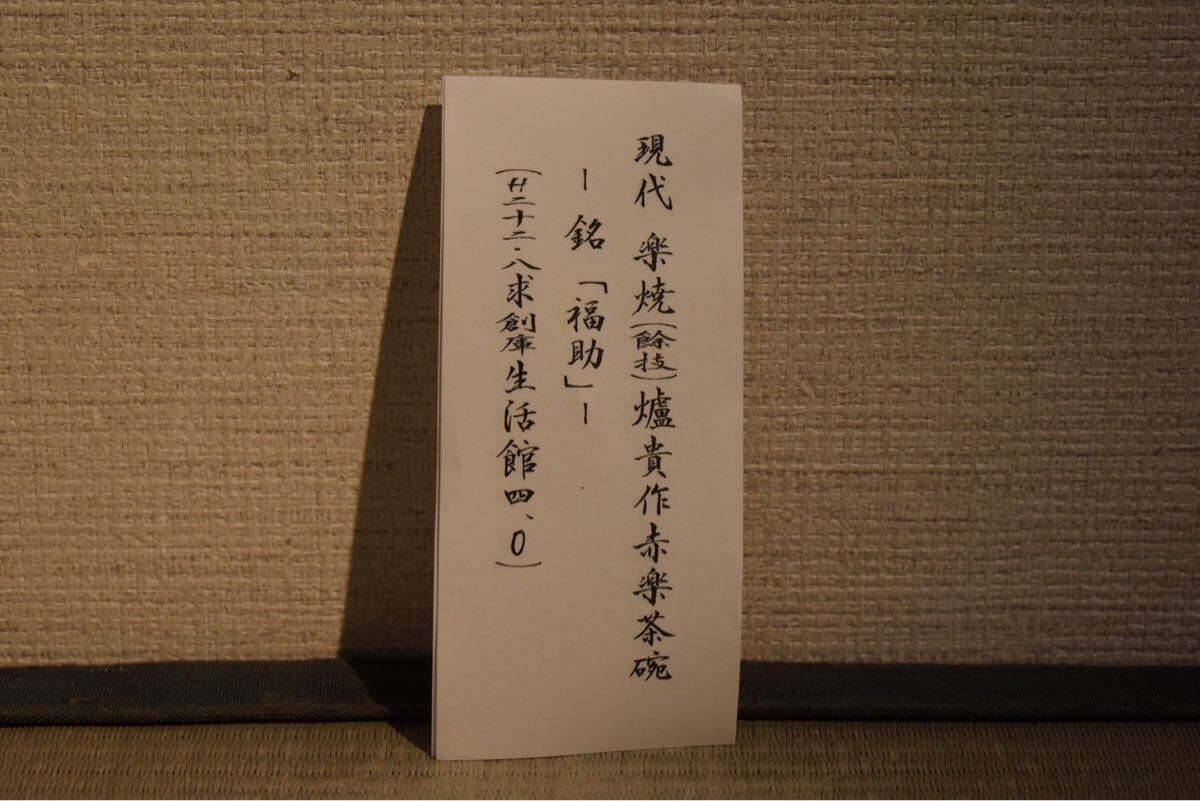 現代 楽焼(餘技)爐貴作赤楽茶碗
ー 銘「福助」ー
(H二十二・八求創庫生活館四、0)